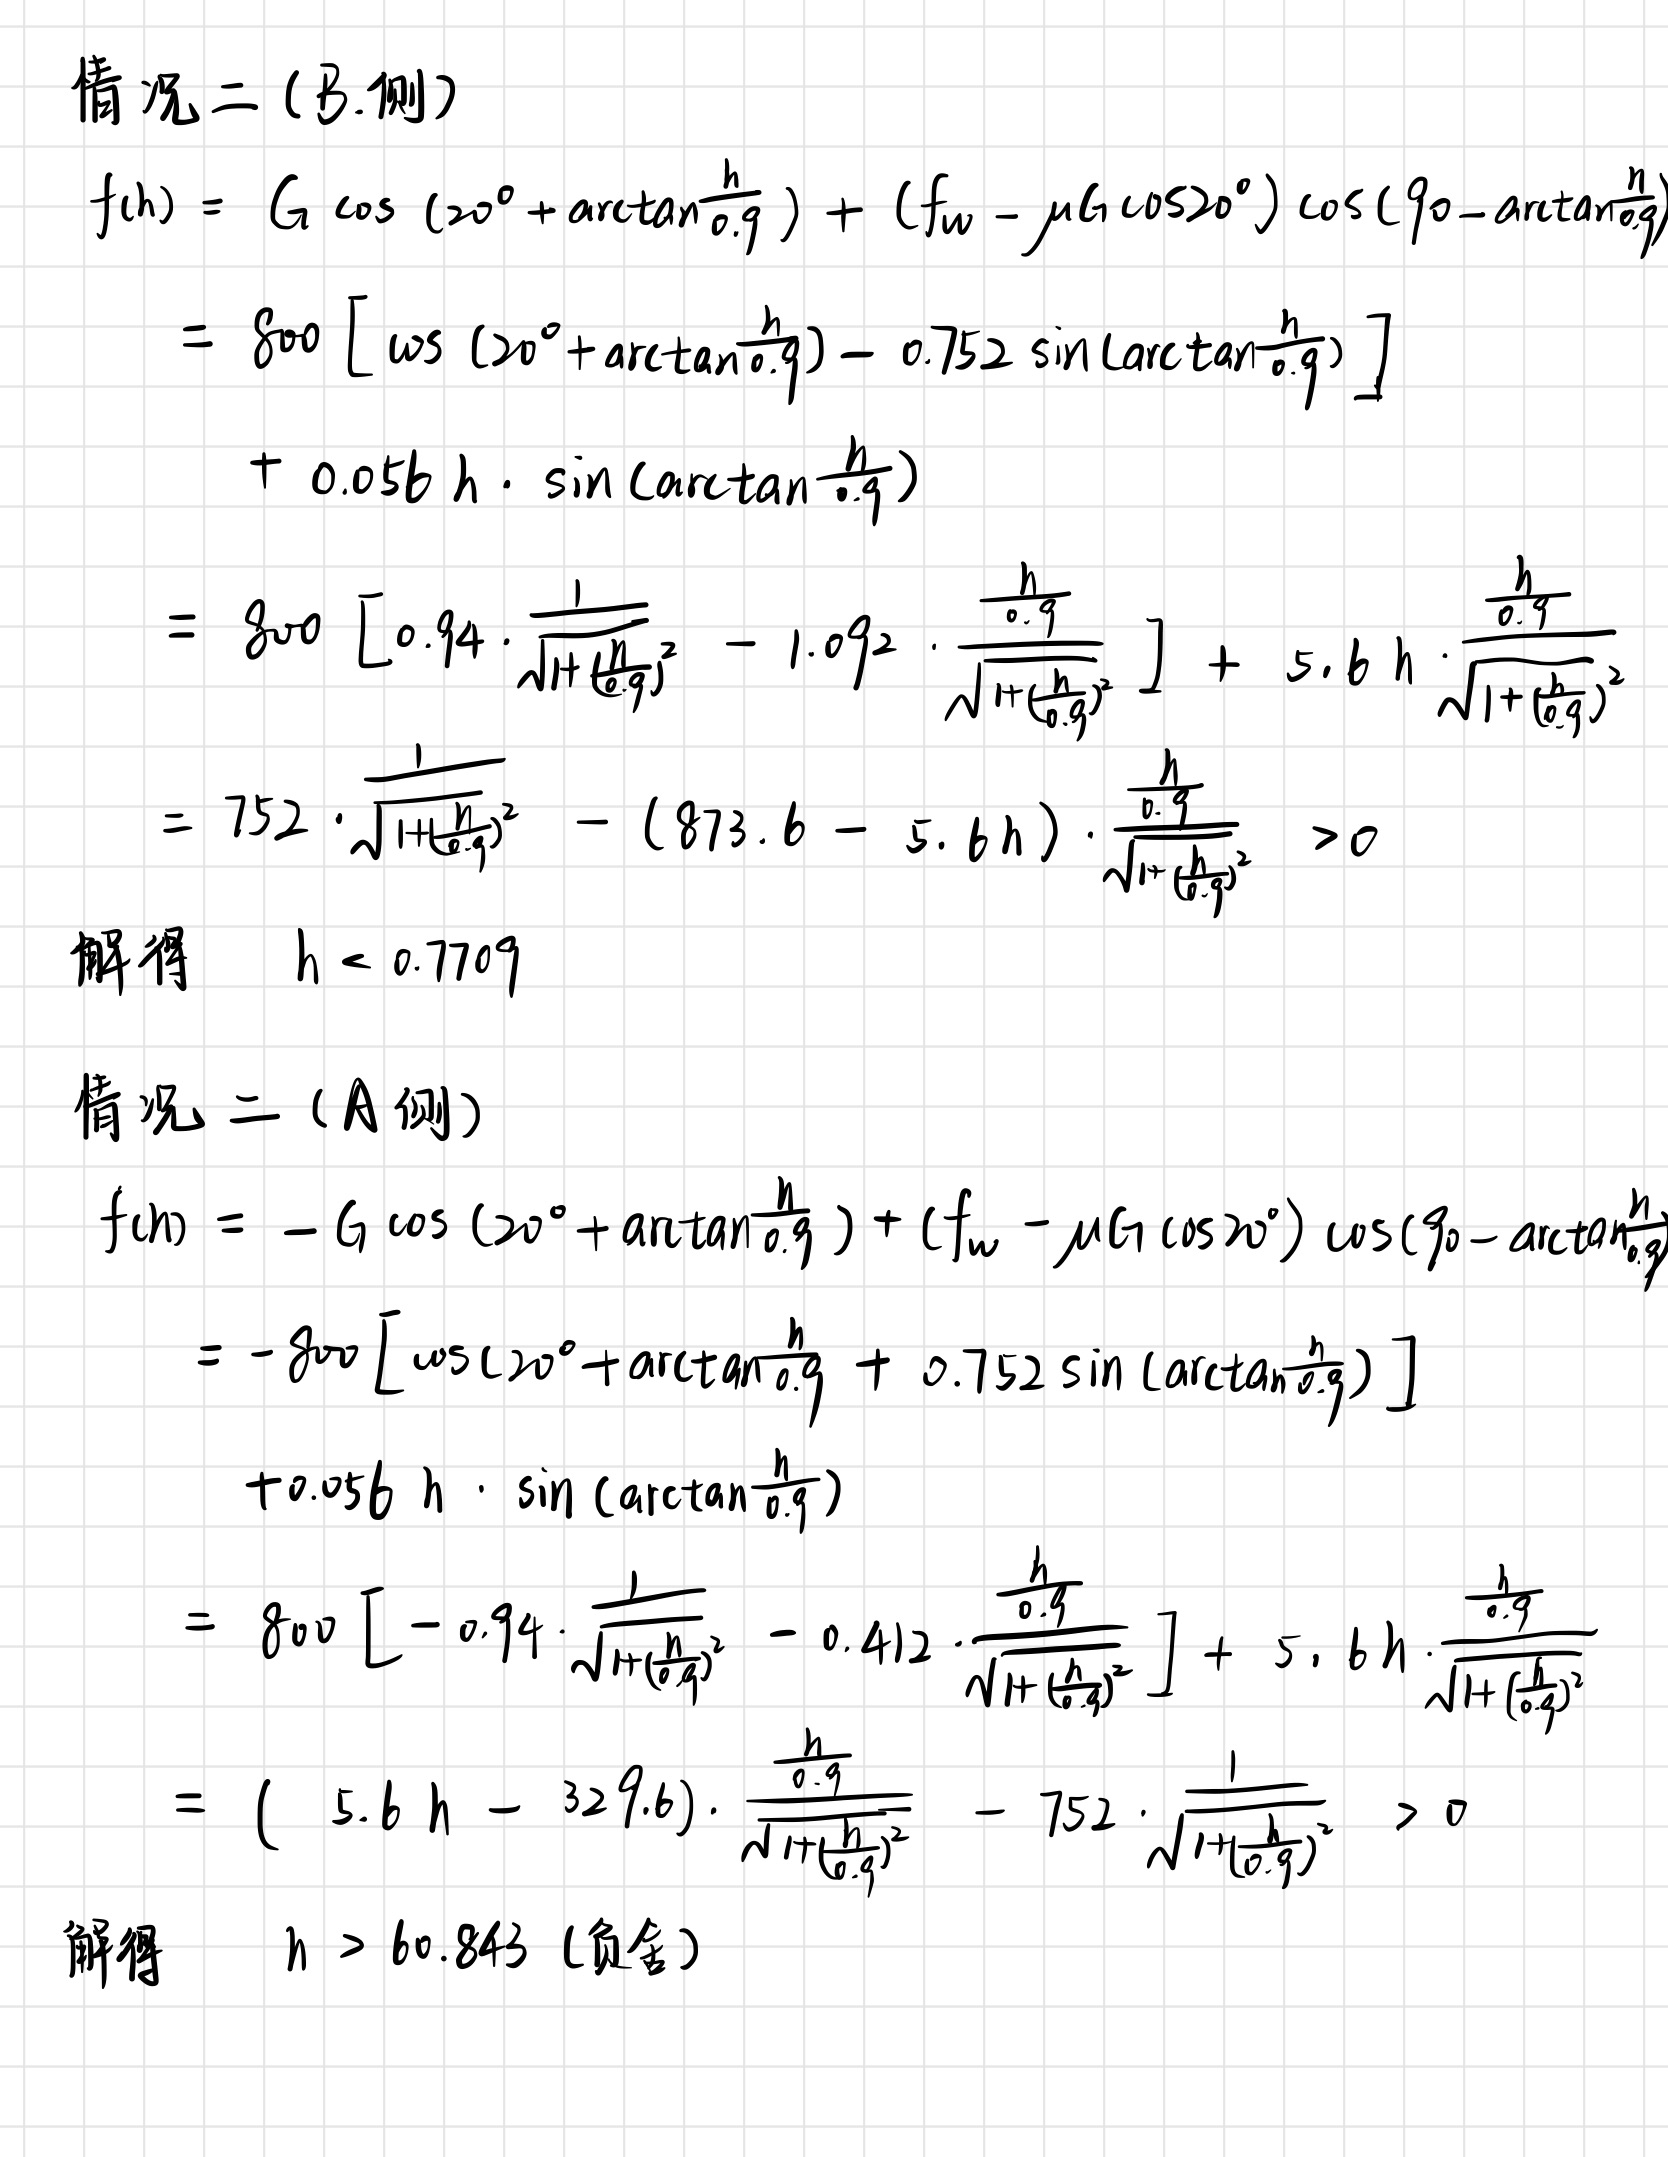 情况二(B.侧)
f(h) = G cos (20° + arctan h/0.9) + (fw - μG cos20°) cos(90 - arctan h/0.9)
= 800 [cos (20° + arctan h/0.9) - 0.752 sin(arctan h/0.9)]
+ 0.056 h · sin(arctan h/0.9)
= 800 [0.94 · 1/√(1+(h/0.9)²) - 1.092 · (h/0.9)/√(1+(h/0.9)²)] + 5.6 h · (h/0.9)/√(1+(h/0.9)²)
= 752 · 1/√(1+(h/0.9)²) - (873.6 - 5.6h) · (h/0.9)/√(1+(h/0.9)²) >0
解得 h < 0.7709
情况二(A侧)
f(h) = - G cos (20° + arctan h/0.9) + (fw - μG cos20°) cos(90 - arctan h/0.9)
= -800 [cos(20° + arctan h/0.9 + 0.752 sin(arctan h/0.9)]
+0.056 h · sin(arctan h/0.9)
= 800 [-0.94 · 1/√(1+(h/0.9)²) - 0.412 · (h/0.9)/√(1+(h/0.9)²)] + 5.6h · (h/0.9)/√(1+(h/0.9)²)
= (5.6 h - 329.6) · (h/0.9)/√(1+(h/0.9)²) - 752 · 1/√(1+(h/0.9)²) > 0
解得 h > 60.843 (负舍)